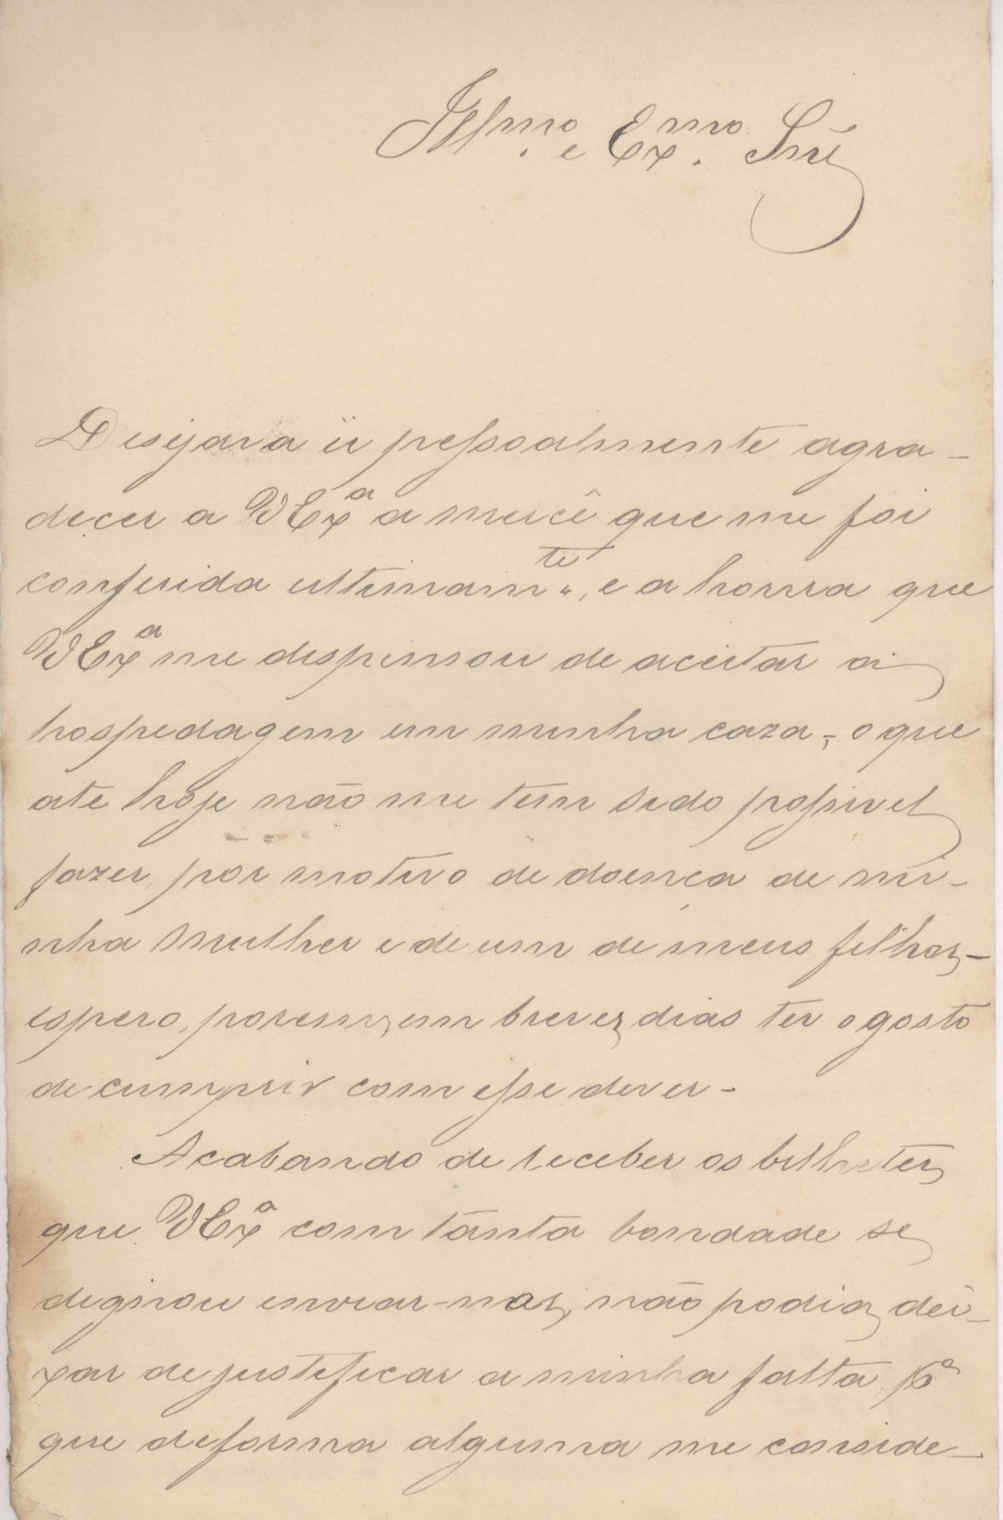 Illmo. e Exmo. Snr.
Desejava ir pessoalmente agra-
decer a VExa a mercê que me foi
conferida ultimamte., e a honra que
VExa me dispensou de aceitar a
hospedagem em minha caza, o que
até hoje não me tem sido possivel
fazer por motivo de doença de mi-
nha mulher e de um de meus filhos,-
espero, porem, em breves dias ter o gosto
de cumprir com esse dever-
Acabando de receber os bilhetes
que VExa com tanta bondade se
dignou enviar-nos, não podia dei-
xar de justificar a minha falta pa
que de forma alguma me conside-